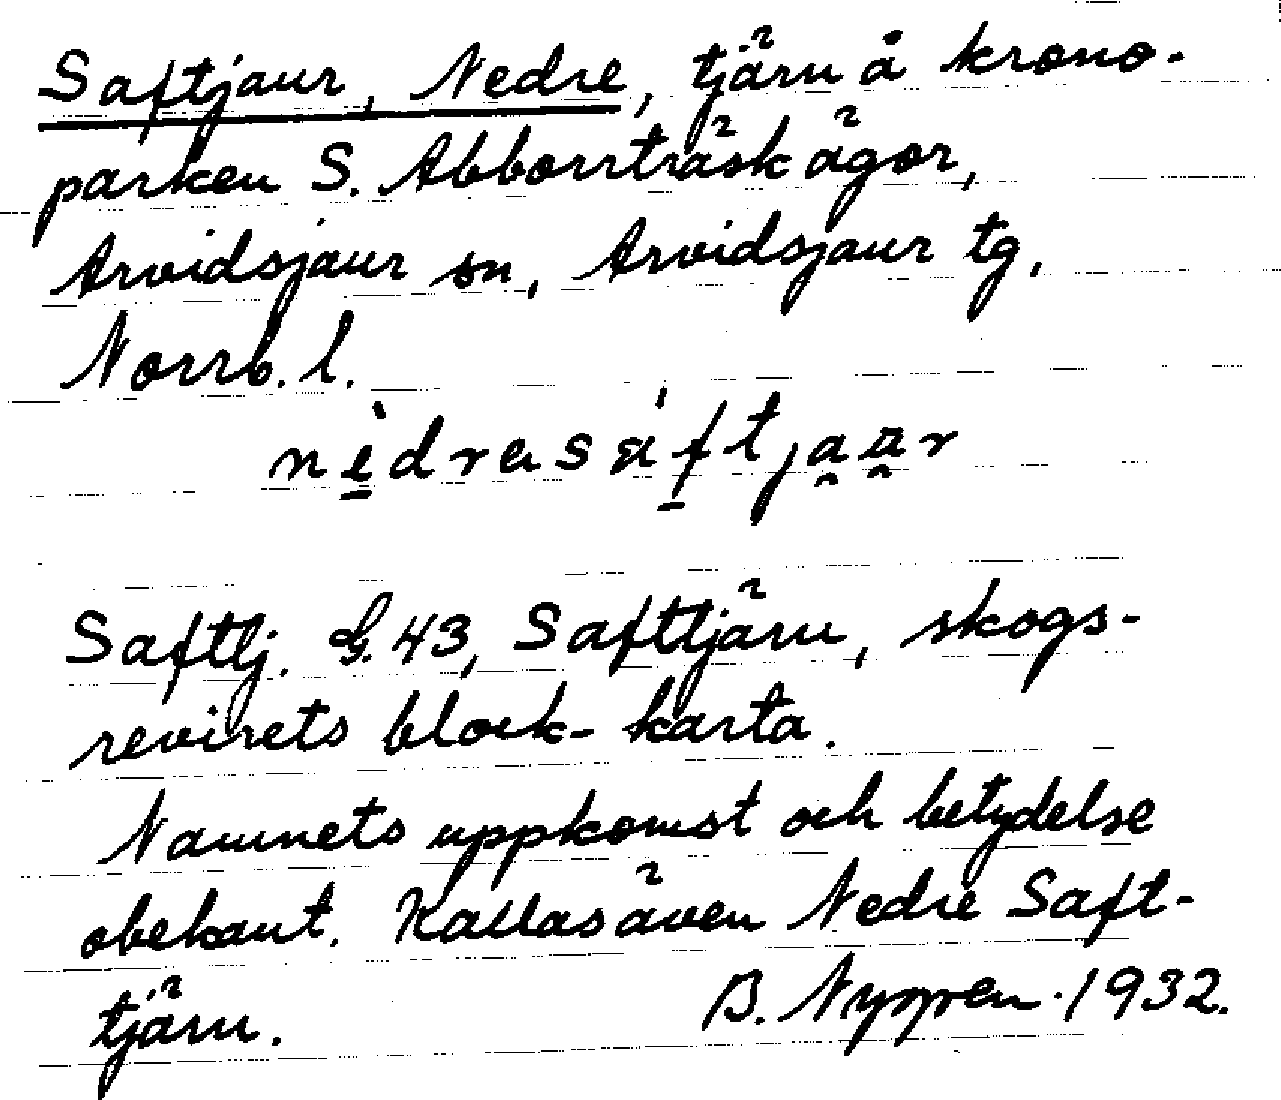 Saftjaur, Nedre, tjärn å krono-
parken S. Abborrträsk ägor,
Arvidsjaur sn, Arvidsjaur tg,
Norrb. l.
Safttj. G. 43, Safttjärn, skogs-
revirets block-karta.
Namnets uppkomst och betydelse
obekant. Kallas även Nedre Saft-
tjärn.
B. Nygren. 1932.